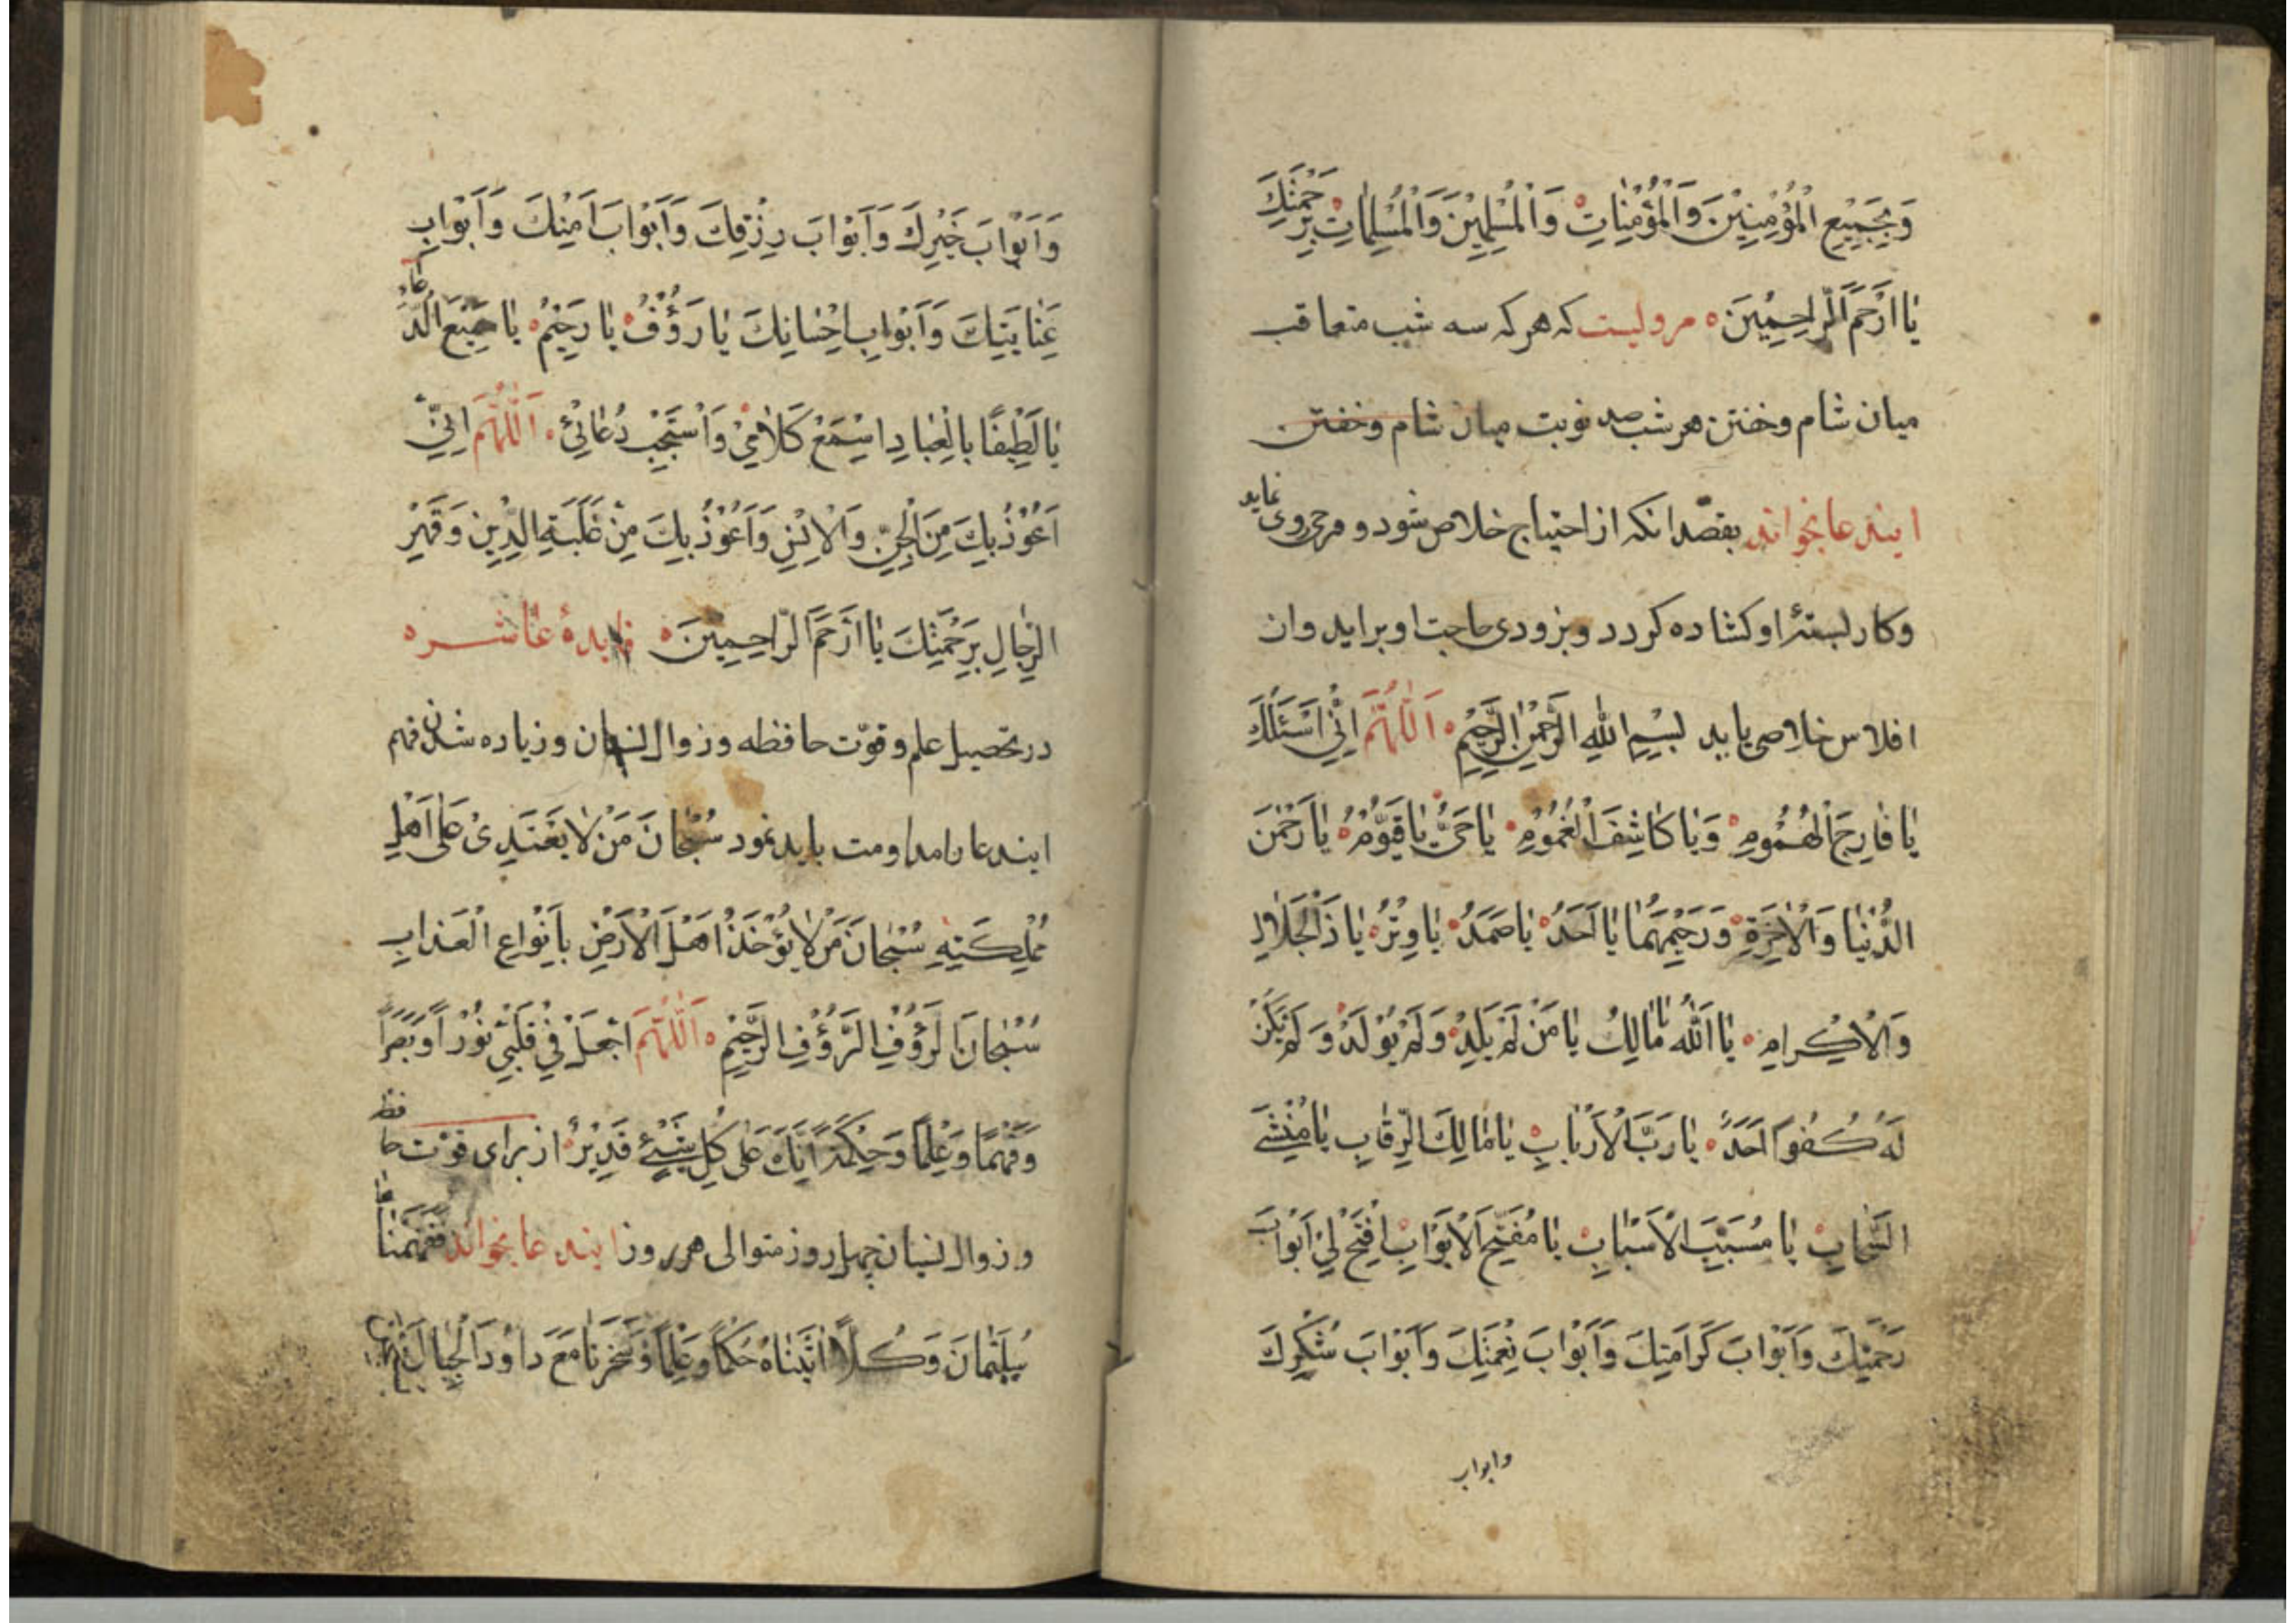 وَبِجَمِيْعِ الْمُؤْمِنِيْنَ وَالْمُؤْمِنَاتِ وَالْمُسْلِمِيْنَ وَالْمُسْلِمَاتِ بِرَحْمَتِكَ
يَا اَرْحَمَ الرَّاحِمِيْنَ مرویست که هر که سه شب متعاقب
میان شام وخفتن هر شب صد نوبت میان شام وخفتن
ایندعا بخواند بقصد انکه از احتیاج خلاص شود و فرحی روی نماید
وکار بستهٔ او کشاده کردد و بزودی حاجت او براید وان
افلاس خلاصی یابد بِسْمِ اللهِ الرَّحْمٰنِ الرَّحِيْمِ اَللّٰهُمَّ اِنِّيْ اَسْئَلُكَ
يَا فَارِجَ الْهُمُوْمِ وَيَا كَاشِفَ الْغُمُوْمِ يَا حَيُّ يَا قَيُّوْمُ يَا رَحْمٰنَ
الدُّنْيَا وَالْاٰخِرَةِ وَرَحِيْمَهُمَا يَا اَحَدُ يَا صَمَدُ يَا وِتْرُ يَا ذَا الْجَلَالِ
وَالْاِكْرَامِ يَا اَللّٰهُ يَا مَالِكُ يَا مَنْ لَمْ يَلِدْ وَلَمْ يُوْلَدْ وَلَمْ يَكُنْ
لَهُ كُفُوًا اَحَدٌ يَا رَبَّ الْاَرْبَابِ يَا مَالِكَ الرِّقَابِ يَا مُنْشِئَ
السَّحَابِ يَا مُسَبِّبَ الْاَسْبَابِ يَا مُفَتِّحَ الْاَبْوَابِ اِفْتَحْ لِيْ اَبْوَابَ
رَحْمَتِكَ وَاَبْوَابَ كَرَامَتِكَ وَاَبْوَابَ نِعْمَتِكَ وَاَبْوَابَ شُكْرِكَ
وابواب
وَاَبْوَابَ خَيْرِكَ وَاَبْوَابَ رِزْقِكَ وَاَبْوَابَ اَمْنِكَ وَاَبْوَابِ
عِنَايَتِكَ وَاَبْوَابِ اِحْسَانِكَ يَا رَؤُفُ يَا رَحِيْمُ يَا سَمِيْعَ الدُّعَاءِ
يَا لَطِيْفًا بِالْعِبَادِ اِسْمَعْ كَلَامِيْ وَاسْتَجِبْ دُعَائِيْ اَللّٰهُمَّ اِنِّيْ
اَعُوْذُ بِكَ مِنَ الْجِنِّ وَالْاِنْسِ وَاَعُوْذُ بِكَ مِنْ غَلَبَةِ الدَّيْنِ وَقَهْرِ
الرِّجَالِ بِرَحْمَتِكَ يَا اَرْحَمَ الرَّاحِمِيْنَ فایدهٔ عاشره
در تحصیل علم و قوّت حافظه وزوال نسیان وزیاده شدن فهم
ایندعا را مداومت باید نمود سُبْحَانَ مَنْ لَا يَعْتَدِىْ عَلٰى اَهْلِ
مَمْلِكَتِهِ سُبْحَانَ مَنْ لَا يُؤْخَذُ اَهْلَ الْاَرْضِ بِاَنْوَاعِ الْعَذَابِ
سُبْحَانَ الرَّؤُفِ الرَّحِيْمِ اَللّٰهُمَّ اجْعَلْ فِيْ قَلْبِيْ نُوْرًا وَبَصَرًا
وَفَهْمًا وَعِلْمًا وَحِكْمَةً اِنَّكَ عَلٰى كُلِّ شَيْءٍ قَدِيْرٌ از برای قوّت حافظه
وزوال نسیان چهل روز متوالی هر روز ایندعا بخواند فَفَهَّمْنَاهَا
سُلَيْمَانَ وَكُلًّا اٰتَيْنَاهُ حُكْمًا وَعِلْمًا وَسَخَّرْنَا مَعَ دَاوُدَ الْجِبَالَ